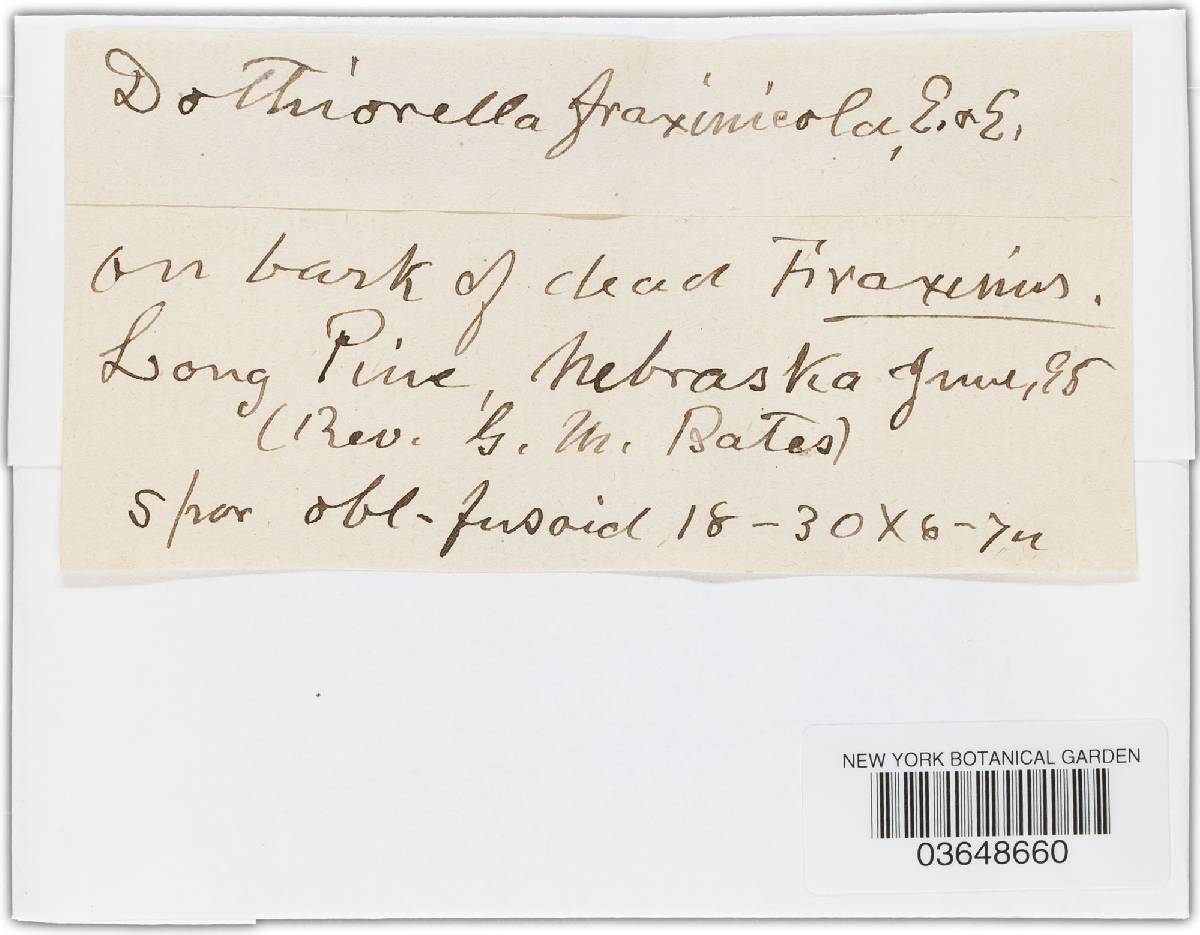 Dothiorella fraxinicola, E. & E.
on bark of dead Fraxinus.
Long Pine, Nebraska June, 95
(Rev. G. M. Bates)
spor obl-fusoid 18-30X6-7u
NEW YORK BOTANICAL GARDEN
03648660